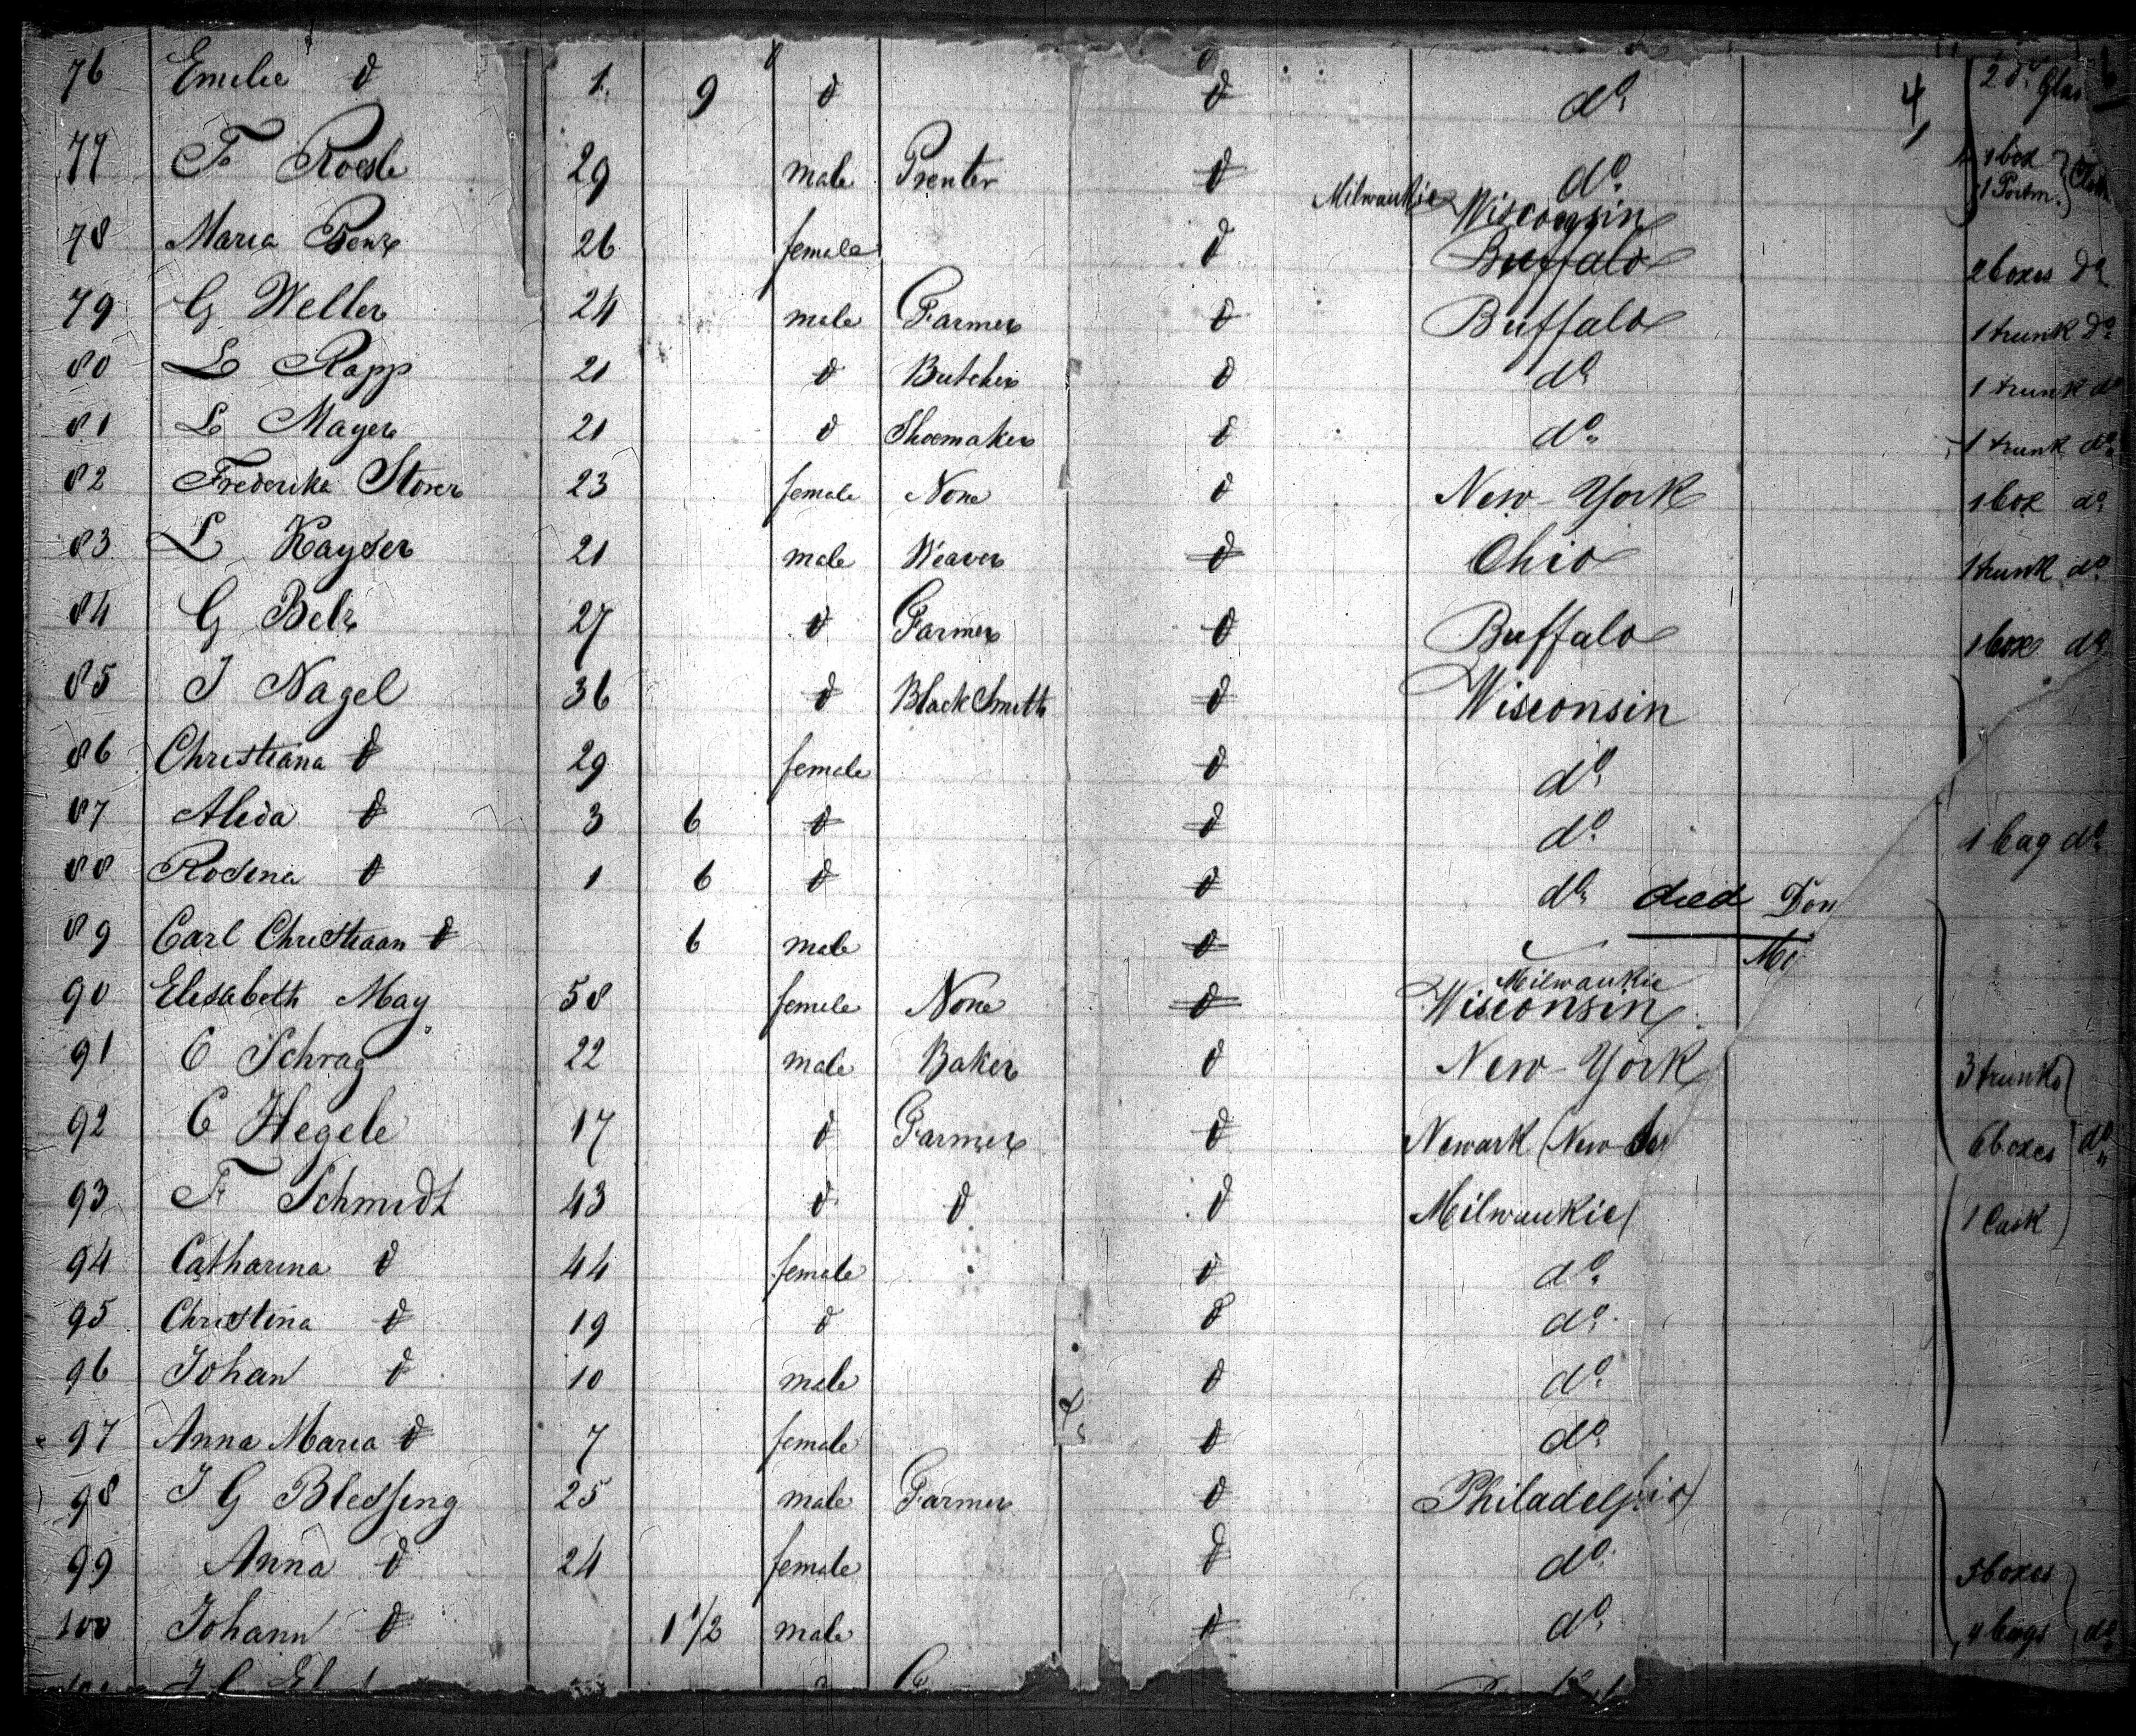 76 Emelie d 1. 9 d d do 4 2 do
77 F Roesle 29 male Prenter d do 1 box
1 Portm.
Milwaukie Wisconsin
78 Maria 26 female d Buffalo 2 boxes do
79 G Weller 24 male Farmer d Buffalo 1 trunk do
80 L Rapp 21 d Butcher d do 1 trunk do
81 L Mayer 21 d Shoemaker d do 1 trunk do
82 Frederika Storer 23 female None d New-York 1 box do
83 L Kayser 21 male Weaver d Ohio 1 trunk do
84 G Belz 27 d Farmer d Buffalo 1 box do
85 J Nagel 36 d BlackSmith d Wisconsin
86 Christiana d 29 female d do
87 Aleda d 3 6 d d do 1 bag do
88 Rosena d 1 6 d d do died
89 Carl Christiaan d 6 male d
Milwaukie
90 Elesabeth May 58 female None d Wisconsin
91 C Schrag 22 male Baker d New-York 3 trunks
92 C Hegele 17 d Farmer d Newark (New 6 boxes do
93 F Schmidt 43 d d d Milwaukie 1 Cask
94 Catharina d 44 female d do
95 Christina d 19 d d do
96 Johan d 10 male d do
97 Anna Maria d 7 female d do
98 J G Blessing 25 male Farmer d Philadelphia
99 Anna d 24 female d do 5 boxes
100 Johann d 1 1/2 male d do 4 bags do